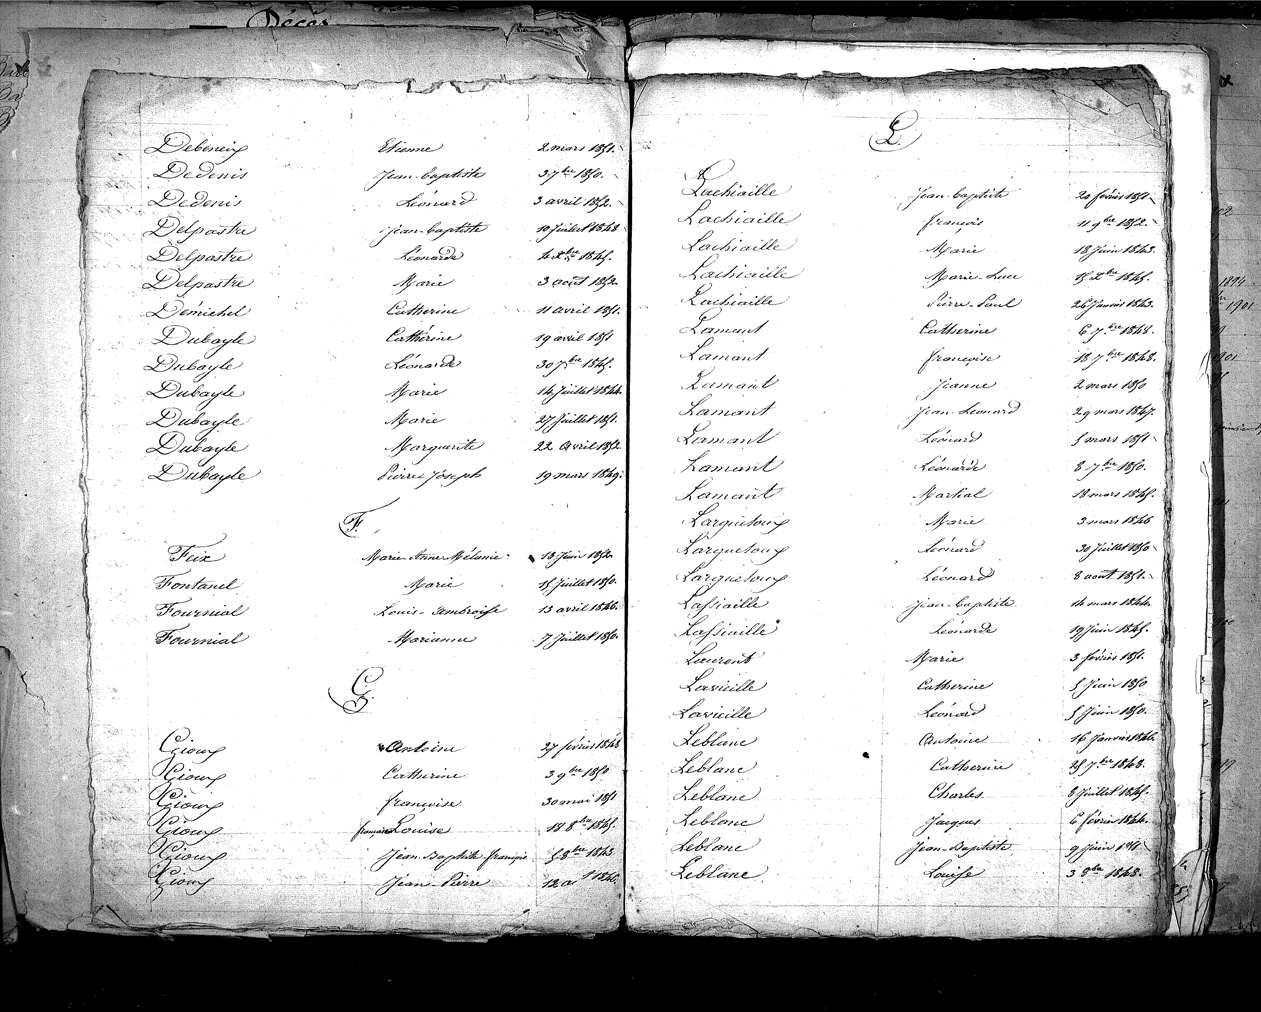 Décès
Debeneix Etienne 2 mars 1851.
Dedenis Jean-baptiste 3 7bre 1850.
Dedenis Léonard 3 avril 1852.
Delpastre Jean-baptiste 10 juillet 1848
Delpastre Léonarde 4 Xbre 1845.
Delpastre Marie 3 août 1852.
Démichel Catherine 11 avril 1851.
Dubayle Cathérine 19 avril 1851
Dubayle Léonarde 30 7bre 1845.
Dubayle Marie 14 juillet 1844.
Dubayle Marie 27 juillet 1851.
Dubayle Marguerite 22 avril 1852
Dubayle Pierre Joseph 19 mars 1849.
F.
Feix Marie-Anne Mélanie 13 juin 1852.
Fontanel Marie 15 juillet 1850.
Fournial Louis-Ambroise 13 avril 1846.
Fournial Marianne 7 juillet 1850.
G.
Gioux Antoine 27 février 1848
Gioux Catherine 3 9bre 1850
Gioux françoise 30 mai 1851
Gioux françoise Louise 18 8bre 1845.
Gioux Jean-Baptiste-françois 5 8bre 1843.
Gioux Jean-Pierre 12 1846.
L.
Lachiaille Jean-baptiste 20 février 1851
Lachiaille françois 11 9bre 1852.
Lachiaille Marie 18 juin 1843.
Lachiaille Marie-Luce 15 Xbre 1845.
Lachiaille Pierre-Paul 26 janvier 1843.
Lamant Catherine 6 7bre 1848.
Lamant françoise 18 7bre 1848.
Lamant Jeanne 2 mars 1850
Lamant Jean-Léonard 29 mars 1847.
Lamant Léonard 5 mars 1851
Lamant Léonarde 8 7bre 1850.
Lamant Martial 18 mars 1845.
Larquetoux Marie 3 mars 1846
Larquetoux Léonard 30 juillet 1850
Larquetoux Léonard 8 août 1851.
Lassiaille Jean-baptiste 14 mars 1844.
Lassiaille Léonarde 19 juin 1845.
Laurent Marie 3 février 1851.
Lavieille Catherine 5 juin 1850
Lavieille Léonard 5 juin 1850.
Leblanc Antoine 16 janvier 1846.
Leblanc Catherine 25 7bre 1848.
Leblanc Charles 8 juillet 1845.
Leblanc Jacques 6 février 1844.
Leblanc Jean-Baptiste 9 juin 1851
Leblanc Louise 3 8bre 1848.